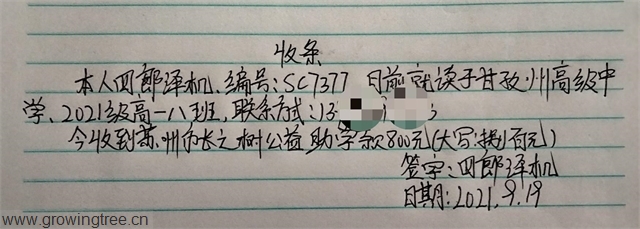 收条
本人四郎泽机,编号:SC7377 目前就读于甘孜州高级中
学,2021级高一八班,联系方式:13
今收到苏州市长之树公益助学款800元(大写:捌佰元)
签字:四郎泽机
日期:2021.9.19
www.growingtree.cn